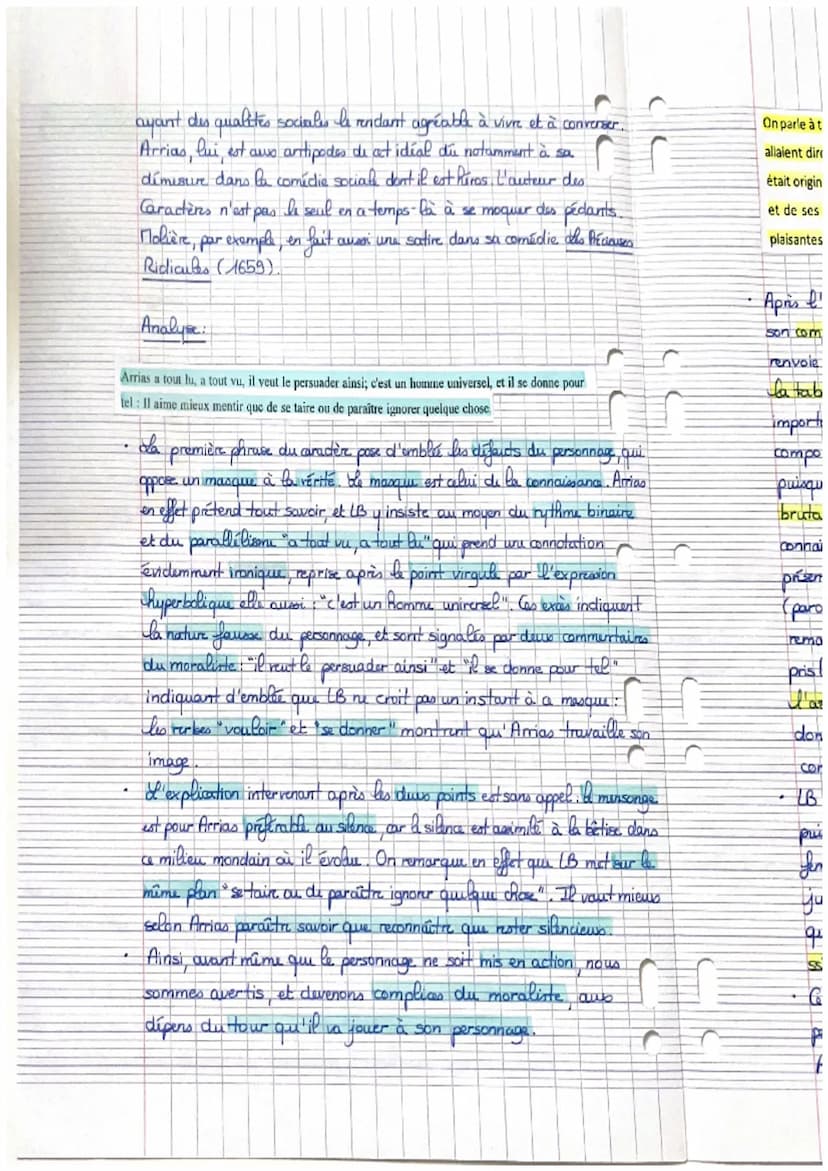 ayant des qualités sociales le rendant agréable à vivre et à converser.
Arrias, lui, est aux antipodes de cet idéal dû notamment à sa
démesure dans la comédie sociale dont il est héros. L'auteur des
Caractères n'est pas le seul en ce temps-là à se moquer des pédants.
Molière, par exemple, en fait aussi une satire dans sa comédie des Précieuses
Ridicules (1659).
Analyse:
Arrias a tout lu, a tout vu, il veut le persuader ainsi; c'est un homme universel, et il se donne pour
tel : Il aime mieux mentir que de se taire ou de paraître ignorer quelque chose.
• La première phrase du caractère pose d'emblée les défauts du personnage, qui
oppose un masque à la vérité. Le masque est celui de la connaissance. Arrias
en effet prétend tout savoir, et LB y insiste au moyen du rythme binaire
et du parallélisme "a tout vu, a tout lu" qui prend une connotation
évidemment ironique, reprise après le point virgule par l'expression
hyperbolique elle aussi : "c'est un homme universel". Ces excès indiquent
la nature fausse du personnage, et sont signalés par deux commentaires
du moraliste : "il veut le persuader ainsi" et "il se donne pour tel"
indiquant d'emblée que LB ne croit pas un instant à ce masque :
les verbes "vouloir" et "se donner" montrent qu'Arrias travaille son
image.
• L'explication intervenant après les deux points est sans appel : le mensonge
est pour Arrias préférable au silence, car le silence est assimilé à la bêtise dans
ce milieu mondain où il évolue. On remarque en effet que LB met sur le
même plan "se taire ou de paraître ignorer quelque chose". Il vaut mieux
selon Arrias paraître savoir que reconnaître que rester silencieux.
• Ainsi, avant même que le personnage ne soit mis en action, nous
sommes avertis, et devenons complices du moraliste, aux
dépens du tour qu'il va jouer à son personnage.
On parle à t
allaient dire
était origin
et de ses
plaisantes
• Après l'
son com
renvoie
la tab
import
compo
puisqu
bruta
connai
présen
(paro
remo
pris
don
cor
• LB
pui
ju
qu